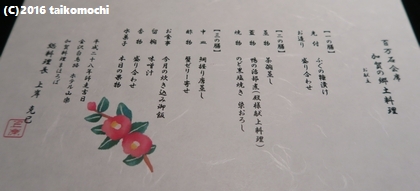 (C)2016 taikomochi
百万石会席
加賀の郷土料理
お献立
【一の膳】
先付 ふぐの糠漬け
お造り 盛り合わせ
【二の膳】
茶碗蒸し
蓋物 鴨の治部煮(殿様献上料理)
焼物 のど黒塩焼き 染おろし
【三の膳】
中皿 唐蒸し
酢物 蟹ゼリー寄せ
お食事 今月の炊き込み御飯
留椀 味噌汁
香物 盛り合わせ
水菓子 本日の果物
平成二十八年師走吉日
金沢白鳥路 ホテル山楽
加賀料理まほろば
総料理長 上岸 克己